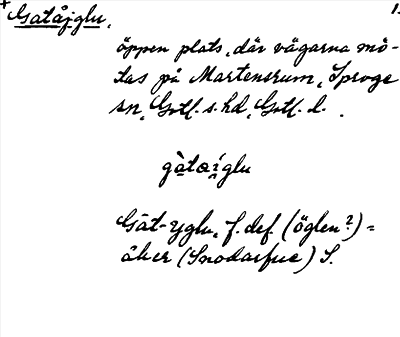 + Gatåjglu. 1.
öppen plats, där vägarna mö-
tas på Martensrum, Sproge
sn, Gotl. s. hd, Gotl. l.
gàtaíglu
Gāt-yglu, f. def. (öglen?) =
åker (Snodarfve) S.